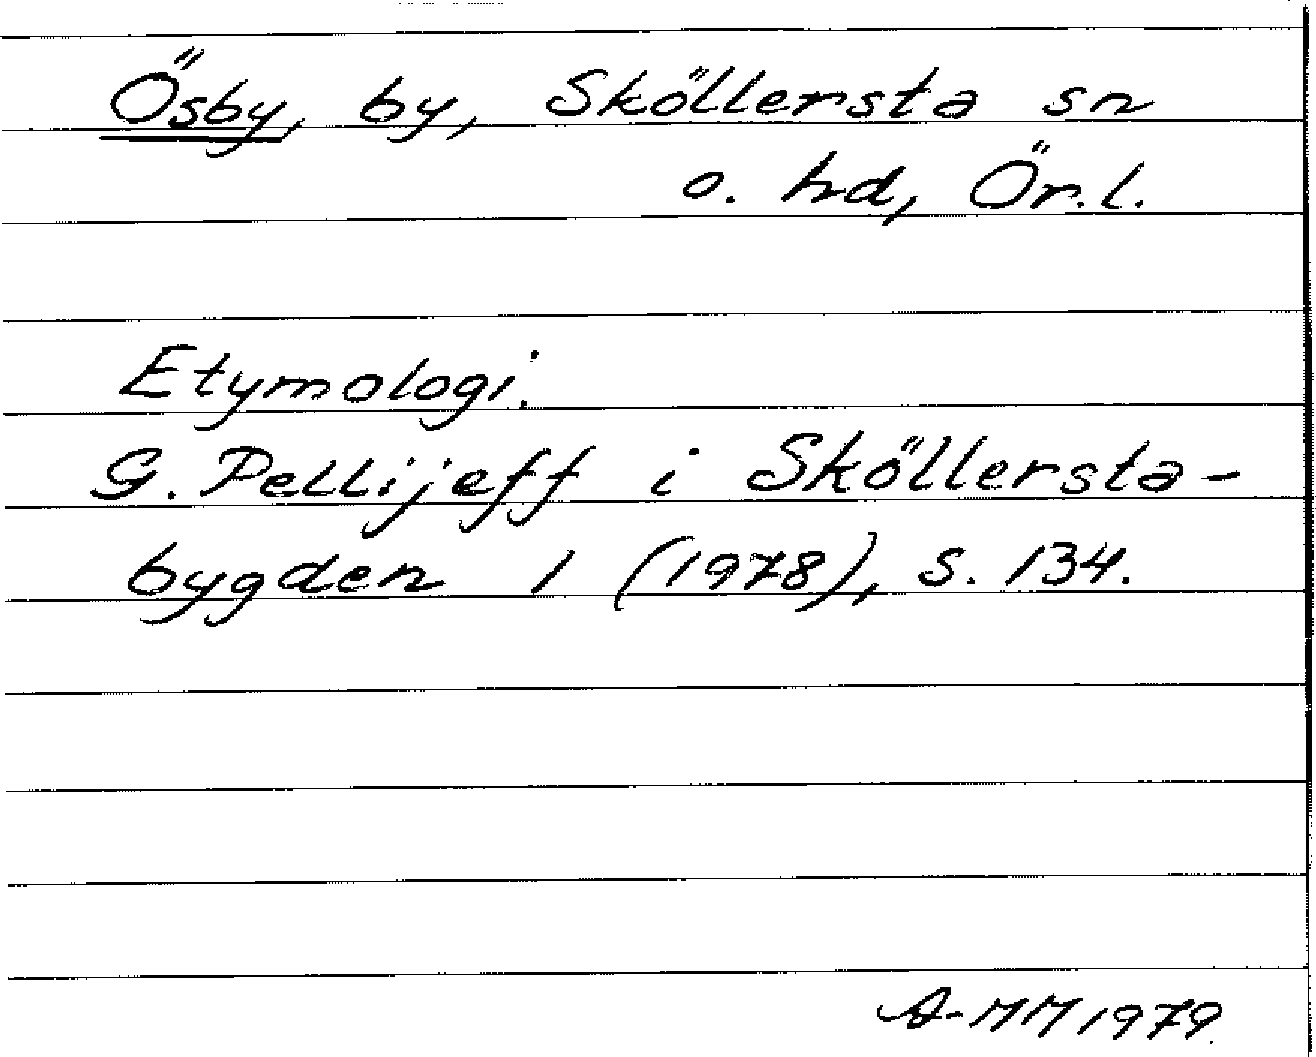 Ösby, by, Sköllersta sn
o. hd, Ör.l.
Etymologi.
G. Pellijeff i Sköllersta-
bygden 1 (1978), s. 134.
A-MM 1979.